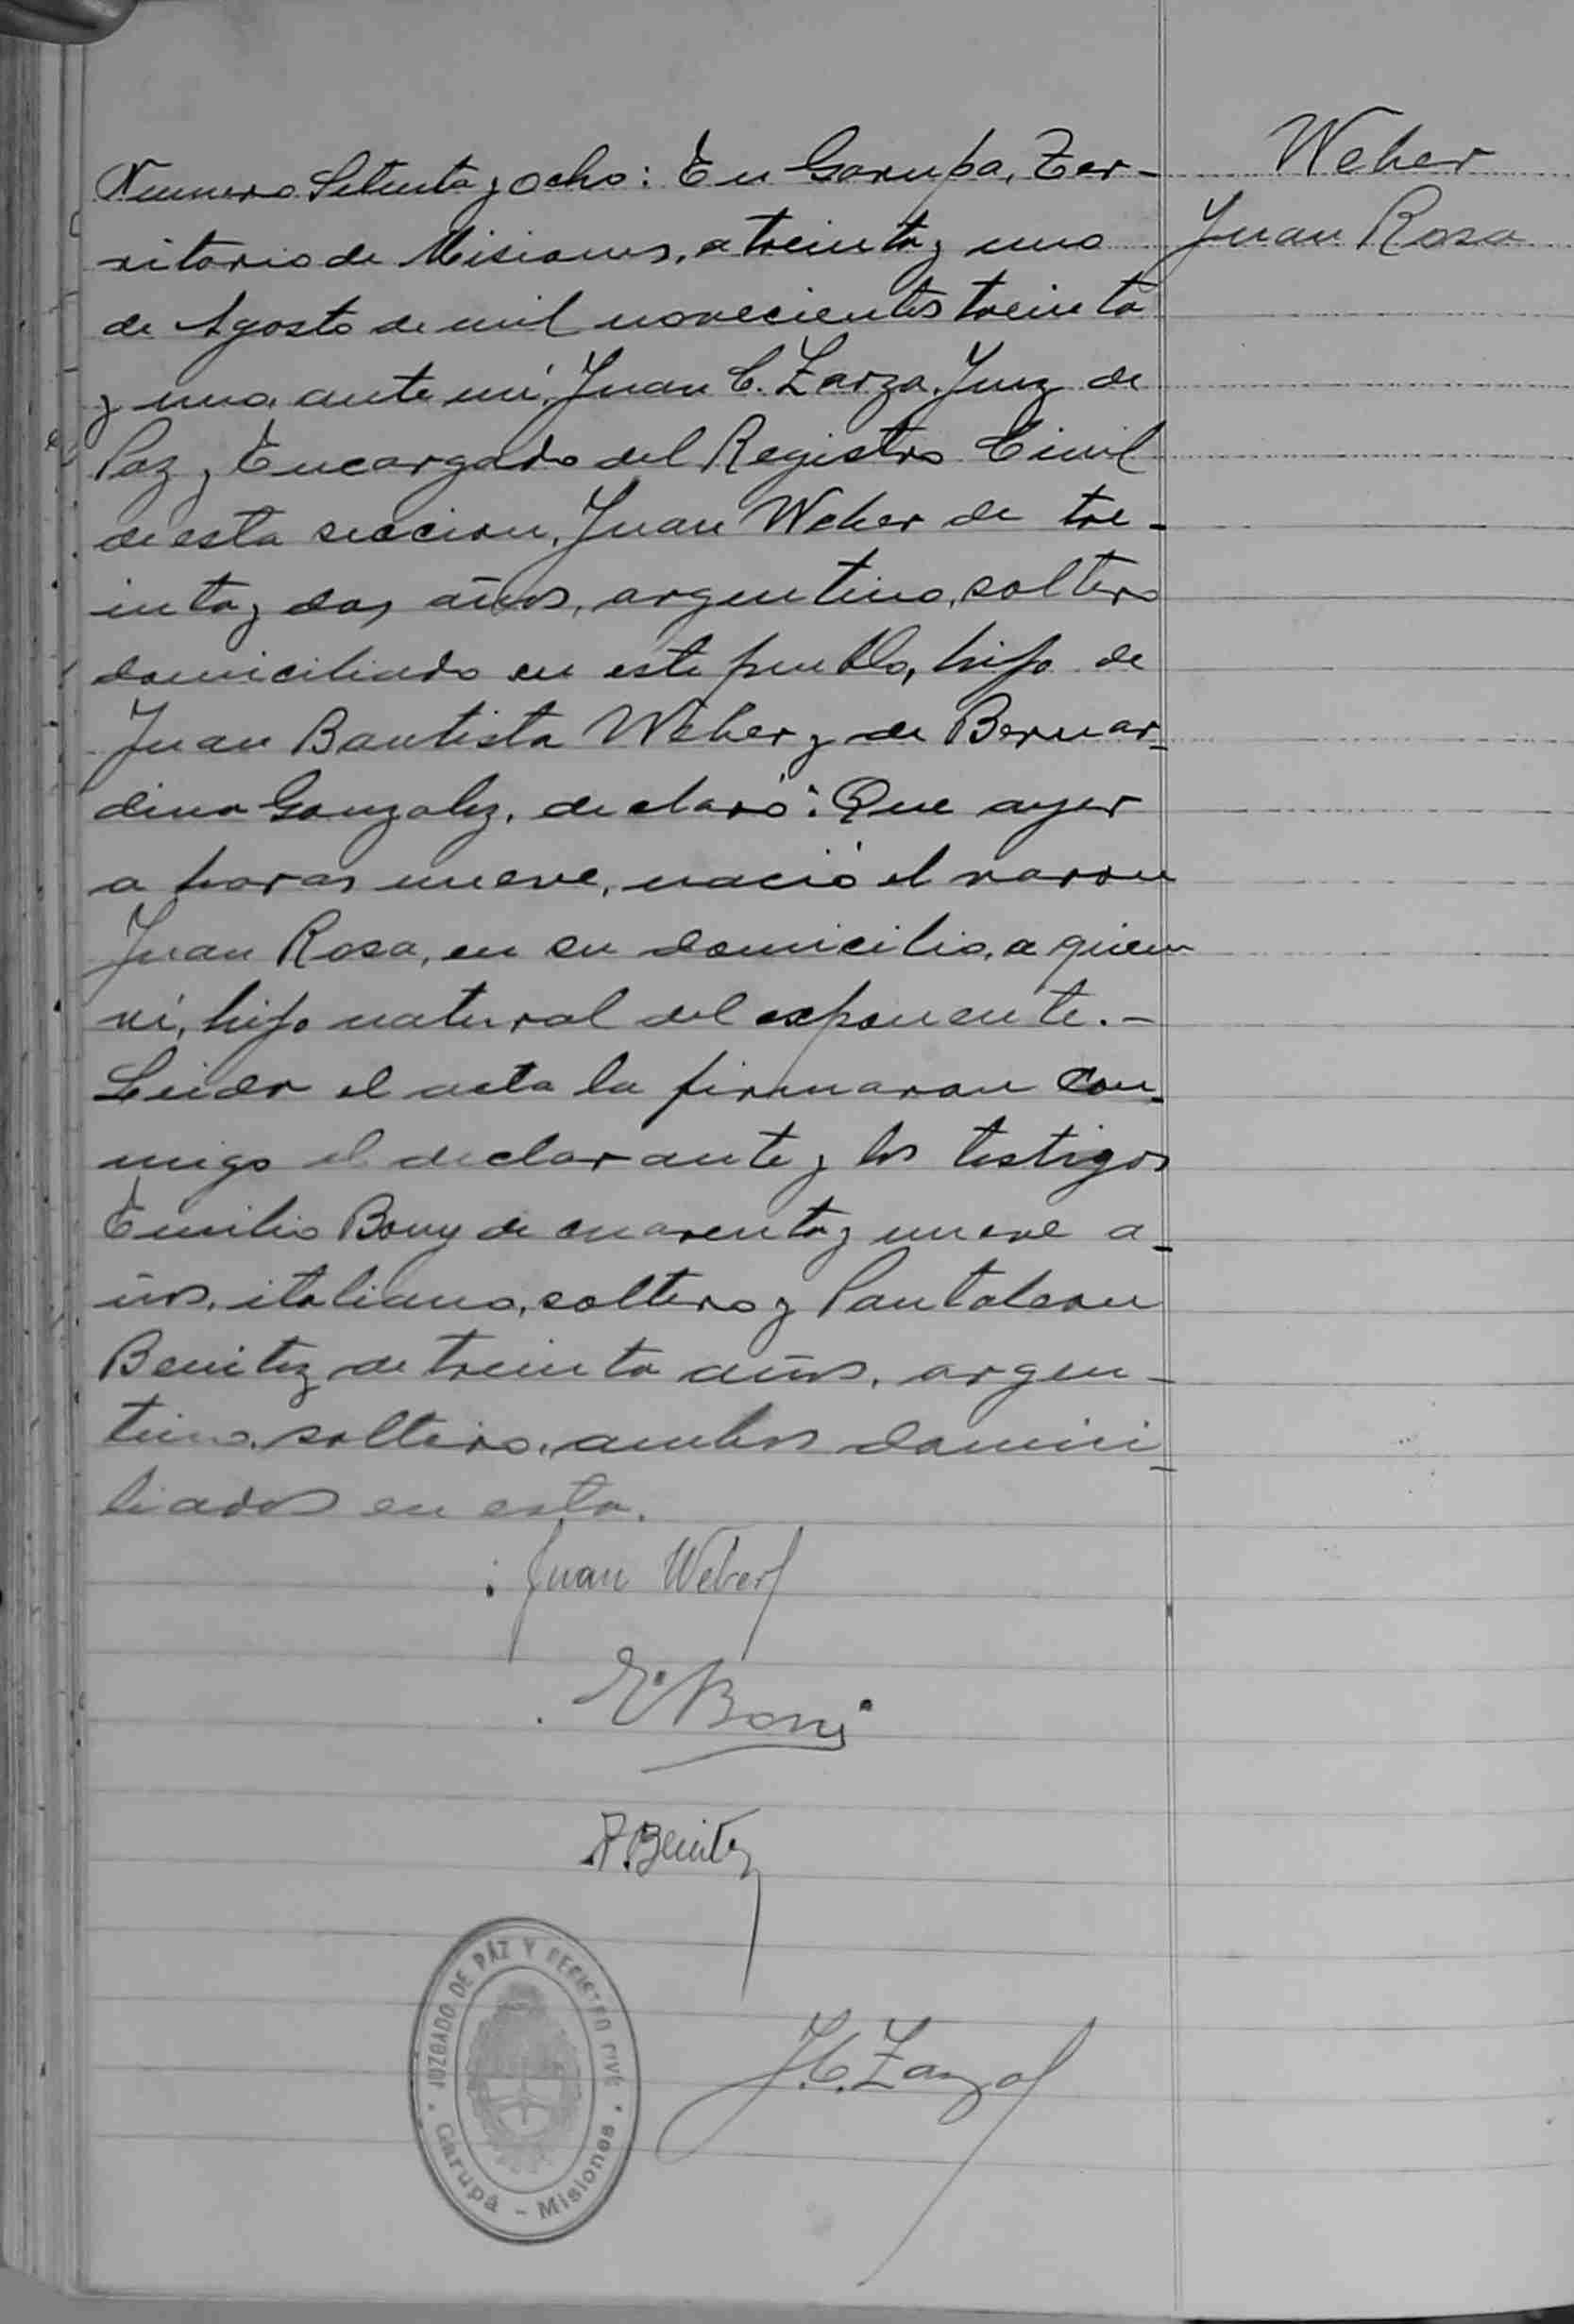 Weber
Juan Rosa
Numero Setenta y ocho: En Garupa, Ter-
ritorio de Misiones, a treinta y uno
de Agosto de mil novecientos treinta
y uno, ante mí, Juan C. Zarza, Juez de
Paz y Encargado del Registro Civil
de esta seccion, Juan Weber de tre-
inta y dos años, argentino, soltero
domiciliado en este pueblo, hijo de
Juan Bautista Weber y de Bernar-
dina Gonzalez, declaró: Que ayer
a horas nueve, nació el varon
Juan Rosa, en su domicilio, a quien
ví, hijo natural del exponente.-
Leida el acta la firmaron con-
migo el declarante y los testigos
Emilio Bony de cuarenta y nueve a-
ños, italiano, soltero y Pantaleon
Benitez de treinta años, argen-
tino, soltero, ambos domici-
liados en esta.
Juan Weber
E. Boni
P. Benitez
J.C. Zarza
JUZGADO DE PAZ Y REGISTRO CIVIL
Garupá - Misiones